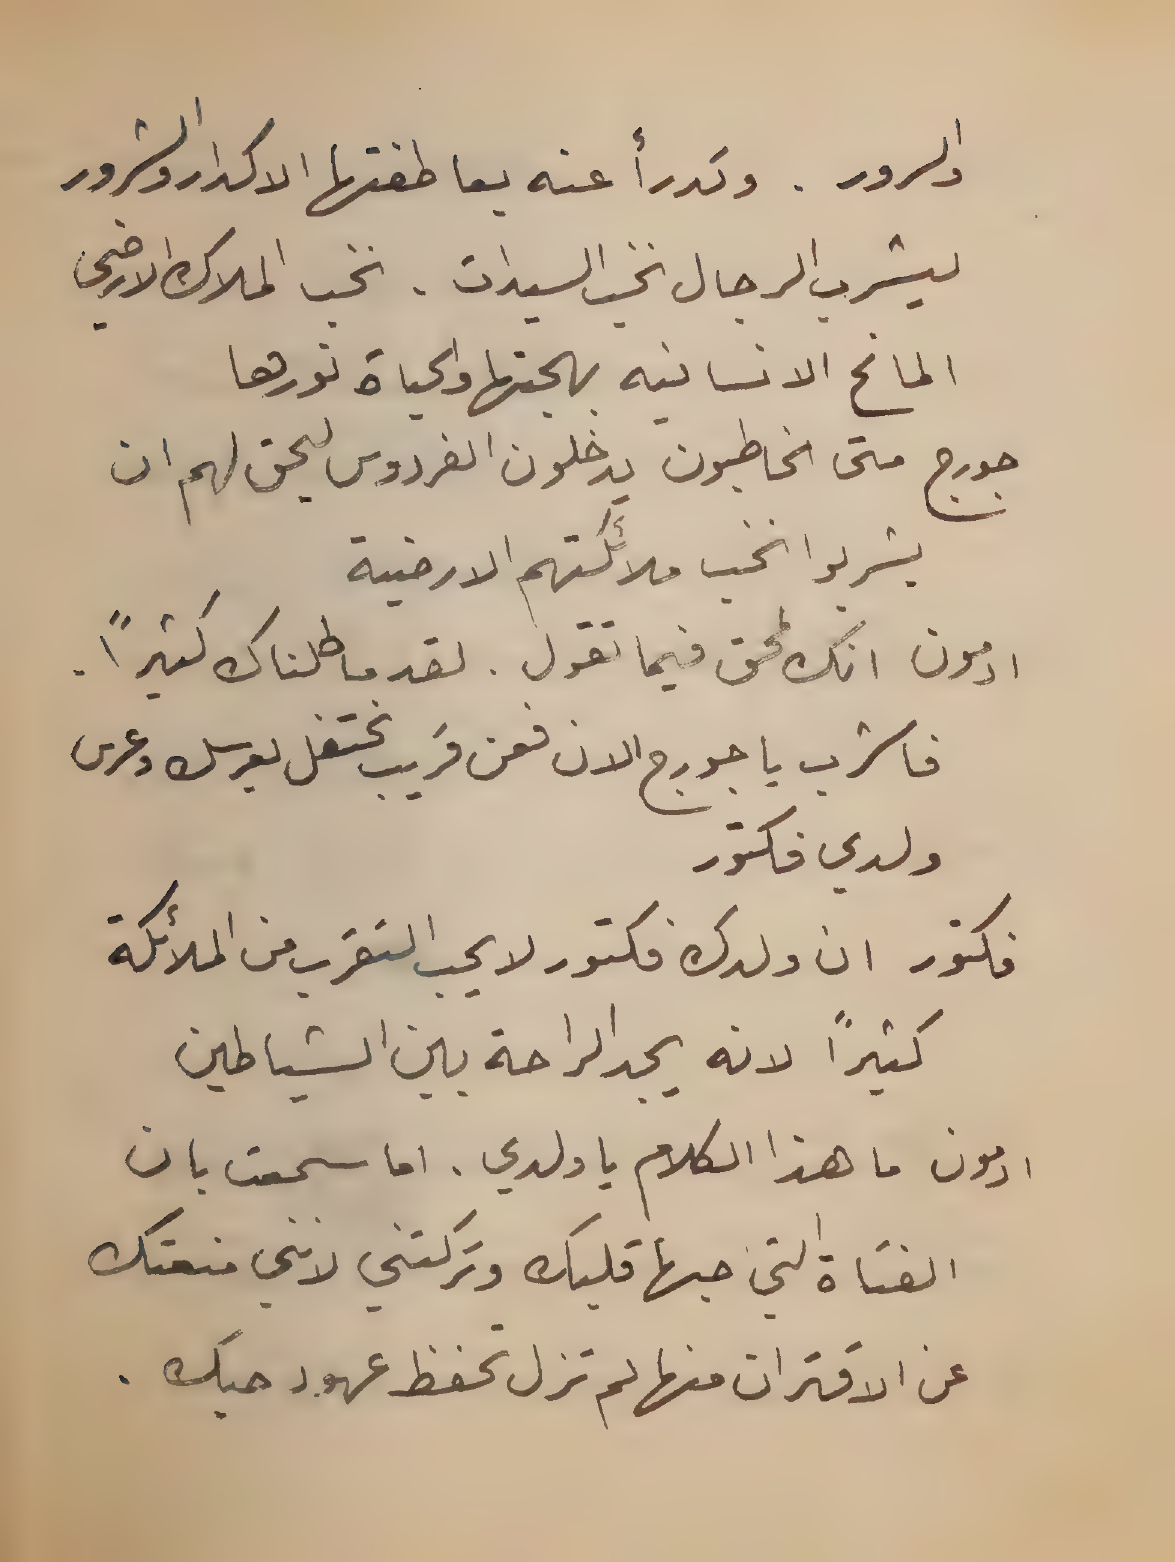 والسرور . وتدرأ عنه بعاطفتها الاكدار والشرور
ليشرب الرجال نخب السيدات . نخب الملاك الارضي
المانح الانسانيه بهجتها والحياة نورها
جورج متى الخاطبون يدخلون الفردوس ليحق لهم ان
يشربوا نخب ملائكتهم الارضية
ادمون انك لمحق فيما تقول . لقد ماطلناك كثيراً .
فاشرب يا جورج الان فعن قريب نحتفل بعرسك وعرس
ولدي فكتور
فكتور ان ولدك فكتور لا يحب التقرب من الملائكة
كثيراً لانه يجد الراحة بين الشياطين
ادمون ما هذا الكلام يا ولدي . اما سمعت بان
الفتاة التي حبها قلبك وتركتني لانني منعتك
عن الاقتران منها لم تزل تحفظ عهود حبك .